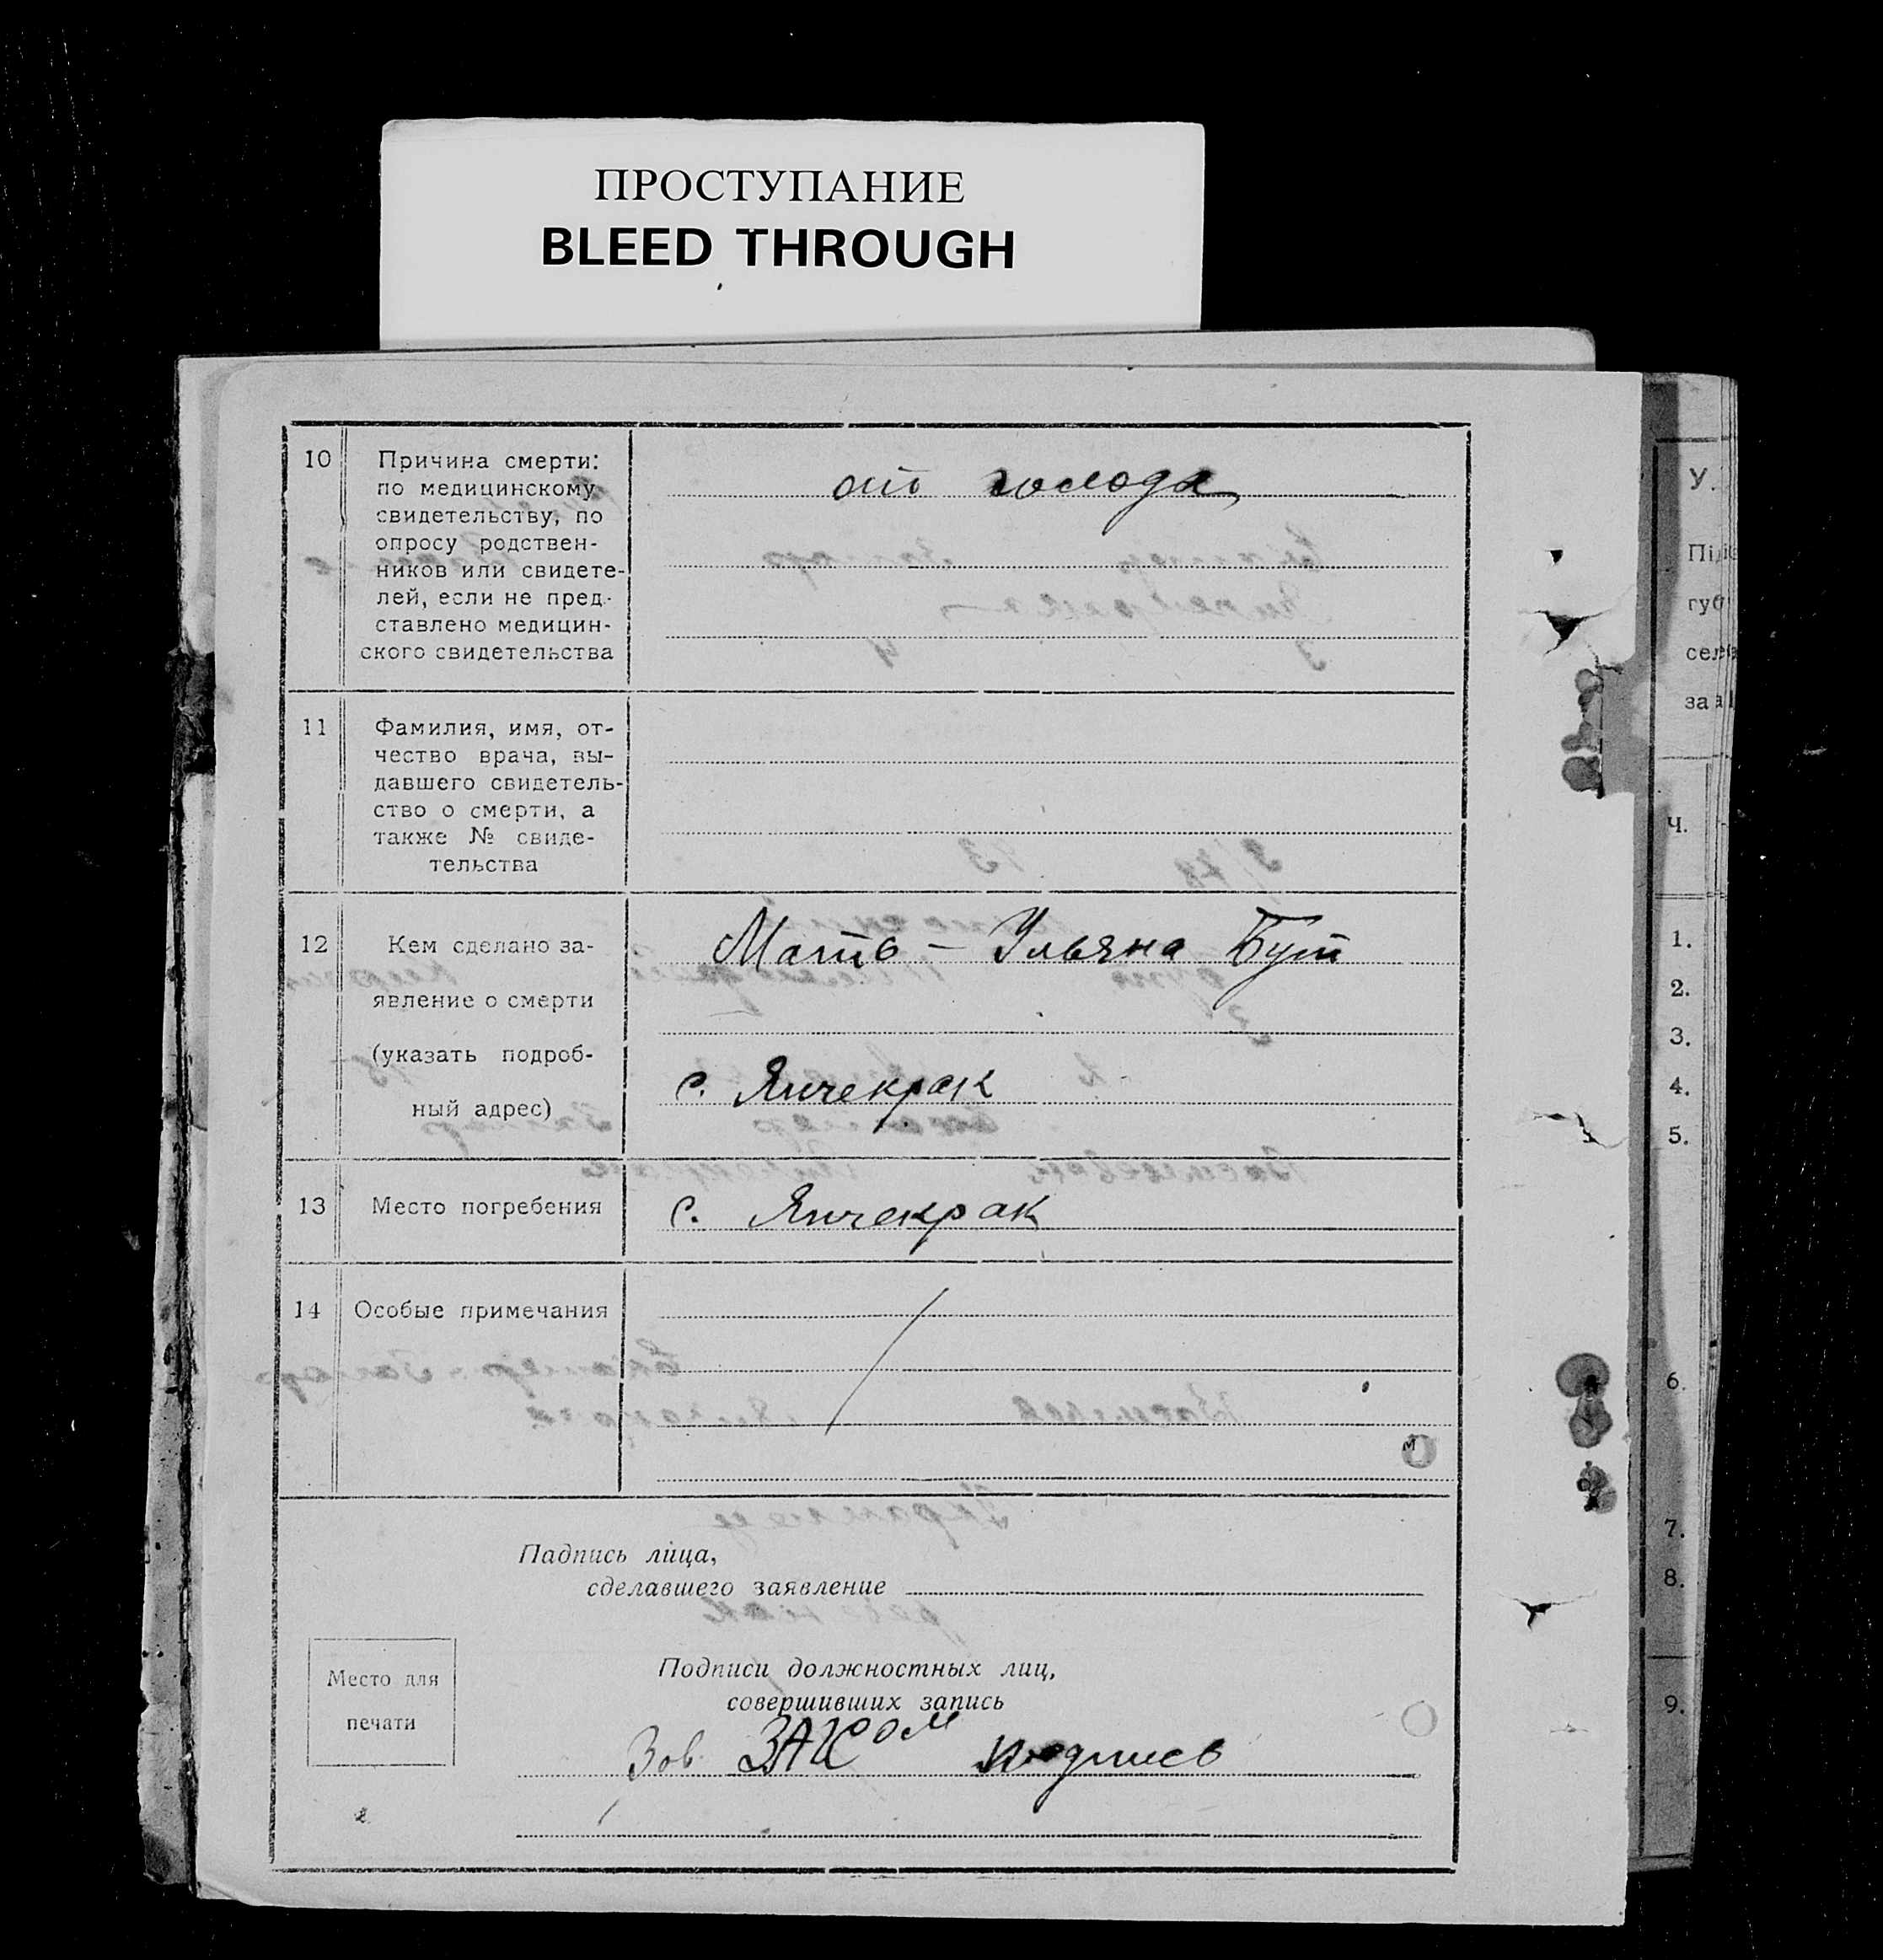 ПРОСТУПАНИЕ
BLEED THROUGH
10
Причина смерти:
по медицинскому
свидетельству, по
опросу родствен-
ников или свидете-
лей, если не пред-
ставлено медицин-
ского свидетельства
от голода
11
Фамилия, имя, от-
чество врача, вы-
давшего свидетель-
ство о смерти, а
также № свиде-
тельства
12
Кем сделано за-
явление о смерти
(указать подроб-
ный адрес)
Мать – Ульяна Бут
с. Янчекрак
13
Место погребения
с. Янчекрак
14
Особые примечания
Падпись лица,
сделавшего заявление
Место для
печати
Подписи должностных лиц,
совершивших запись
Зав ЗАГСом подпись
У.
Пі
губ
сел
за
Ч.
1.
2.
3.
4.
5.
6.
7.
8.
9.